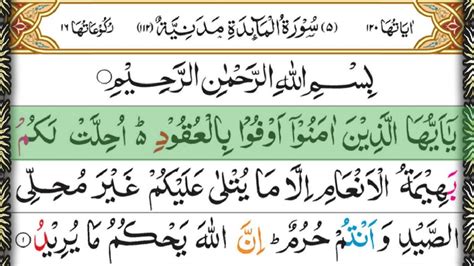 اٰيَاتُهَا ١٢٠ (٥) سُوْرَةُ الْمَآئِدَةِ مَدَنِيَّةٌ (١١٢) رُكُوْعَاتُهَا ١٦
بِسْمِ اللّٰهِ الرَّحْمٰنِ الرَّحِيْمِ
يٰۤاَيُّهَا الَّذِيْنَ اٰمَنُوْۤا اَوْفُوْا بِالْعُقُوْدِ ؕ اُحِلَّتْ لَكُمْ
بَهِيْمَةُ الْاَنْعَامِ اِلَّا مَا يُتْلٰى عَلَيْكُمْ غَيْرَ مُحِلِّى
الصَّيْدِ وَ اَنْتُمْ حُرُمٌ ؕ اِنَّ اللّٰهَ يَحْكُمُ مَا يُرِيْدُ ۝١